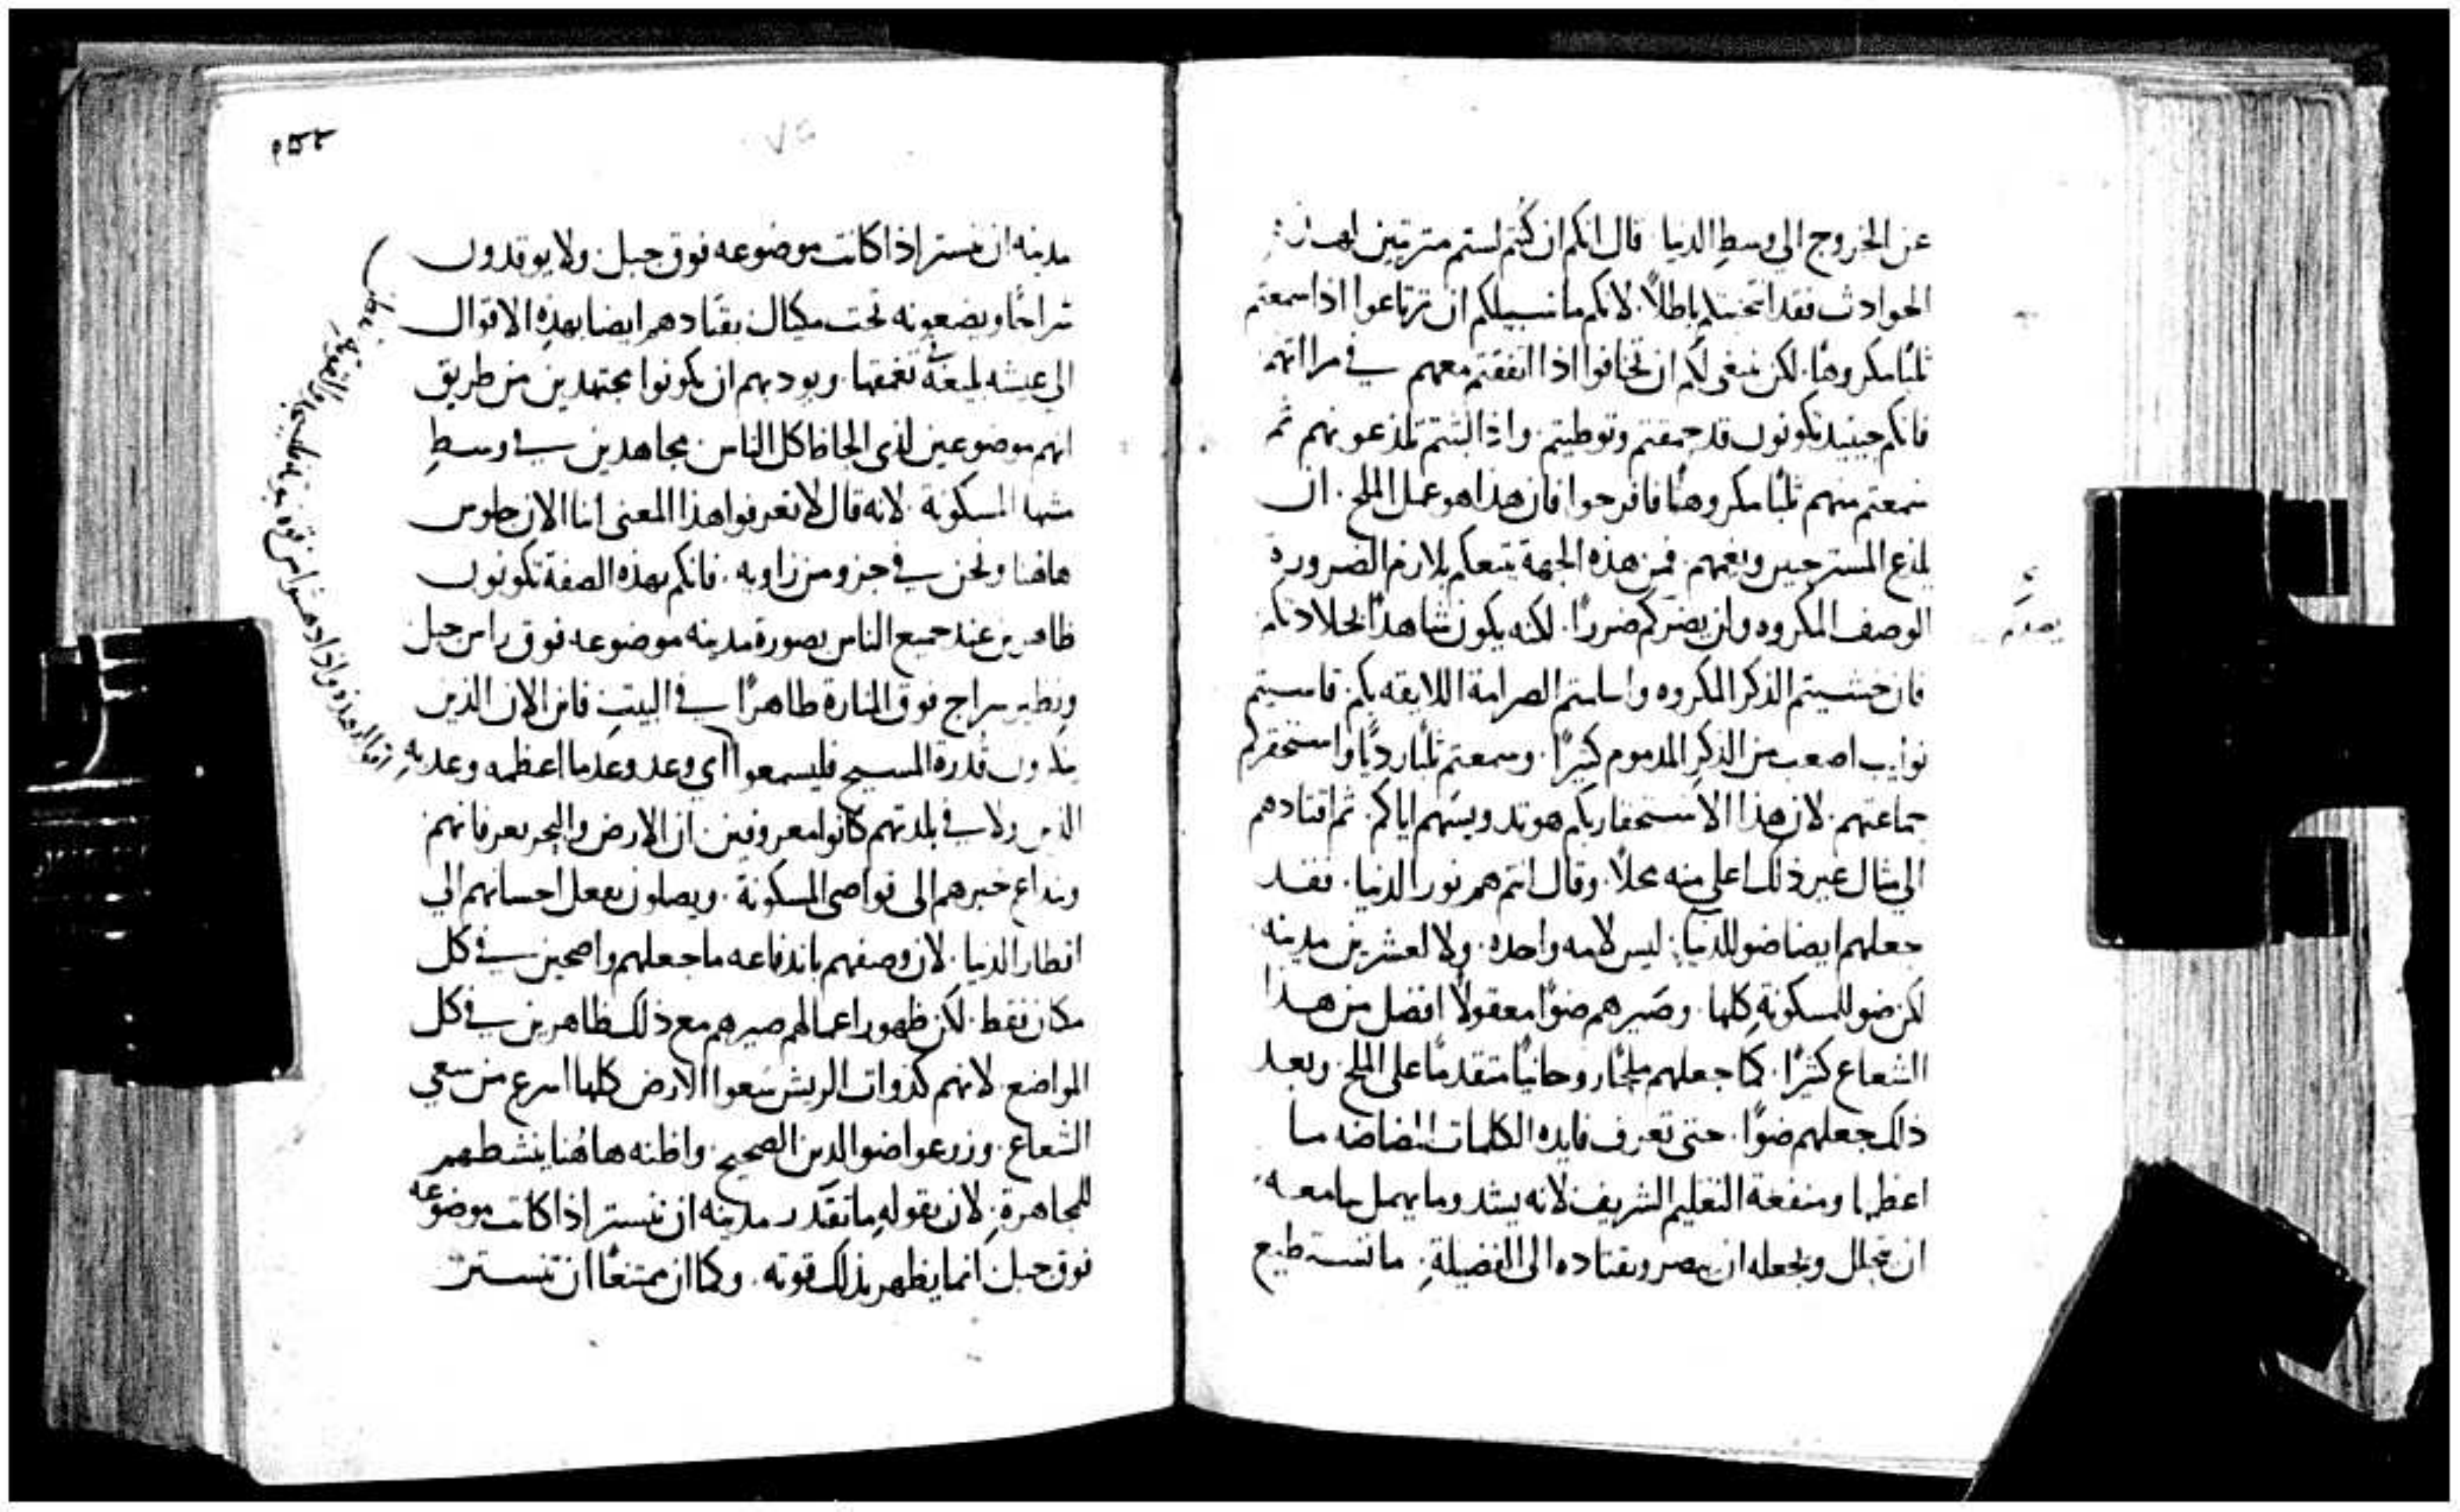 عن الخروج الى وسط الدنيا قال انكم ان كنتم لستم مترتبين لهذه
الحوادث فقد انتخبتكم باطلاً لانكم ما سبيلكم ان ترتاعوا اذا سمعتم
ثلبًا مكروهًا. لكن ينبغى لكم ان تخافوا اذا اتفقتم معهم في مراياتهم
فانكم حينيد تكونون قد حمقتم وتوطيتم. واذا لبثتم تلذعونهم ثم
سمعتم منهم ثلبًا مكروهًا فافرحوا فان هذا هو عمل الملح. ان
يلذع المسترخيين ويغمهم. فمن هذه الجهة يتبعكم بلازم الضرورة
الوصف المكروه ولن يضركم ضررًا. لكنه يكون شاهدًا لجلادتكم
فان خشيتم الذكر المكروه واسلمتم الصرامة اللايقه بكم. قاسيتم
نوايب اصعب من الذكر المدموم كثيرًا. وسمعتم ثلبًا رديًا واستحقركم
جماعتهم. لان هذا الاستحقار بكم هو تدويسهم اياكم. ثم اقتادهم
الى مثال غير ذلك اعلى منه محلاً. وقال انتم هم نور الدنيا. فقد
جعلهم ايضا ضو للدنيا: ليس لامه واحده. ولا لعشرين مدينه
لكن ضو للمسكونة كلها. وصيرهم ضوًا معقولاً افضل من هذا
الشعاع كثيرًا. كما جعلهم ملحًا روحانيًا متقدمًا على الملح. وبعد
ذلك جعلهم ضوًا. حتى تعرف فايده الكلمات المضاضه ما
اعظمها ومنفعة التعليم الشريف لانه يشد وما يهمل سامعه.
ان يتحلل ويجعله ان يبصر ويقتاده الى الفضيلة. ما تستطيع
يصدكم
مدينه ان تستتر اذا كانت موضوعه فوق جبل. ولا يوقدون
سراجًا ويضعونه تحت مكيال. يقتادهم ايضا بهذه الاقوال
الى عيشه بليغة تعمقها. ويودبهم ان يكونوا مجتهدين من طريق
انهم موضوعين لذى الحاظ كل الناس مجاهدين في وسط
مشهد المسكونة. لانه قال لا تعرفوا هذا المعنى اننا الان جلوس
هاهنا ونحن في جزو من زاويه. فانكم بهذه الصفة تكونون
ظاهرين عند جميع الناس بصورة مدينه موضوعه فوق راس جبل
ونظير سراج فوق المنارة ظاهرًا في البيت. فاين الان الذين
ينكرون قدرة المسيح فليسمعوا اي وعد وعدها اعظمه وعد به
الذين ولا في بلدتهم كانوا معروفين. ان الارض والبحر يعرفانهم
ويذاع خبرهم الى نواصى المسكونة. ويصلون بفعل احسانهم الى
اقطار الدنيا. لان وصفهم باندفاعه ما جعلهم واضحين في كل
مكان فقط. لكن ظهور اعمالهم صيرهم مع ذلك ظاهرين في كل
المواضع. لانهم كذوات الريش سعوا الارض كلها اسرع من سعي
الشعاع. وزرعوا ضو الدين الصحيح. واظنه هاهنا ينشطهم
للمجاهرة. لان بقوله ما تقدر مدينه ان تستتر اذا كانت موضوعه
فوق جبل انما يظهر بذلك قوته. وكما ان ممتنعًا ان تستتر